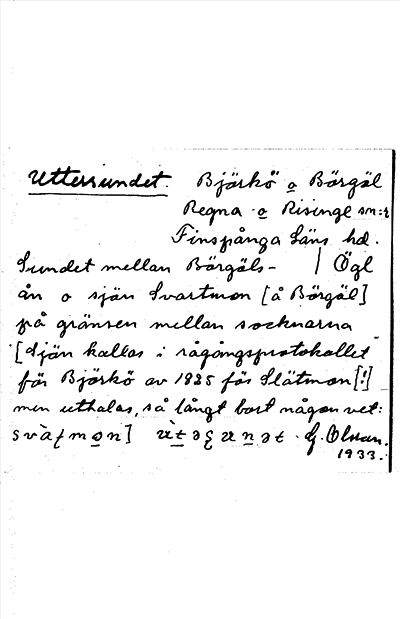 Uttersundet. Björkö o Börgöl
Regna o Risinge sn:r
Finspånga läns hd.
Sundet mellan Börgöls- | Ögl
ån o sjön Svartmon [å Börgöl]
på gränsen mellan socknarna
[Sjön kallas i rågångsprotokollet
för Björkö av 1885 för Slätmon [!]
men uttalas, så långt bort någon vet:
G. Olson.
1933.